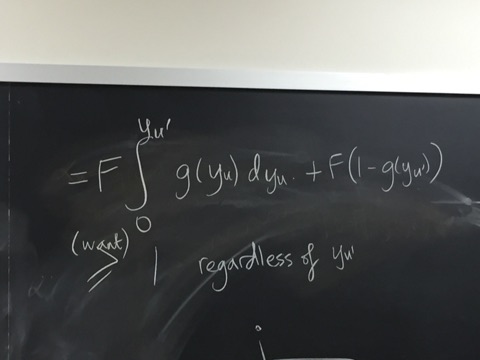 = F ∫₀^{y_u'} g(y_u) dy_u. + F(1 - g(y_u'))
(want)
≥ 1 regardless of y_u'